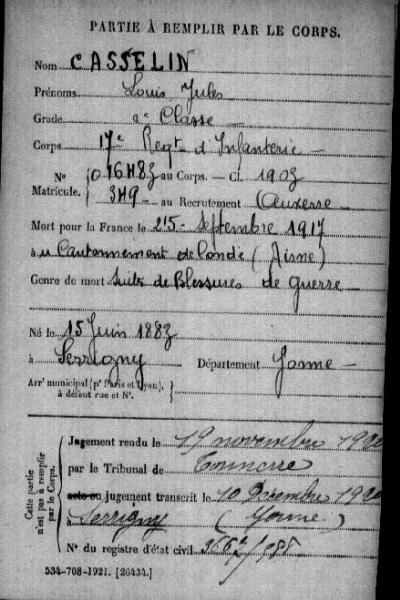 PARTIE À REMPLIR PAR LE CORPS.
Nom CASSELIN
Prénoms Louis Jules
Grade 2e Classe
Corps 17e Regt d'Infanterie
N° 016483 au Corps. — Cl. 1903
Matricule. 349 au Recrutement Auxerre
Mort pour la France le 25 Septembre 1917
à u Cantonnement de Condé (Aisne)
Genre de mort Suites de Blessures de guerre
Né le 15 Juin 1883
à Serrigny Département Yonne
Arrt municipal (pr Paris et Lyon),
à défaut rue et N°.
Cette partie n'est pas à remplir par le Corps.
Jugement rendu le 19 novembre
par le Tribunal de Tonnerre
acte ou jugement transcrit le 10 Décembre
à Serrigny (Yonne)
N° du registre d'état civil
534-708-1921. [26434.]